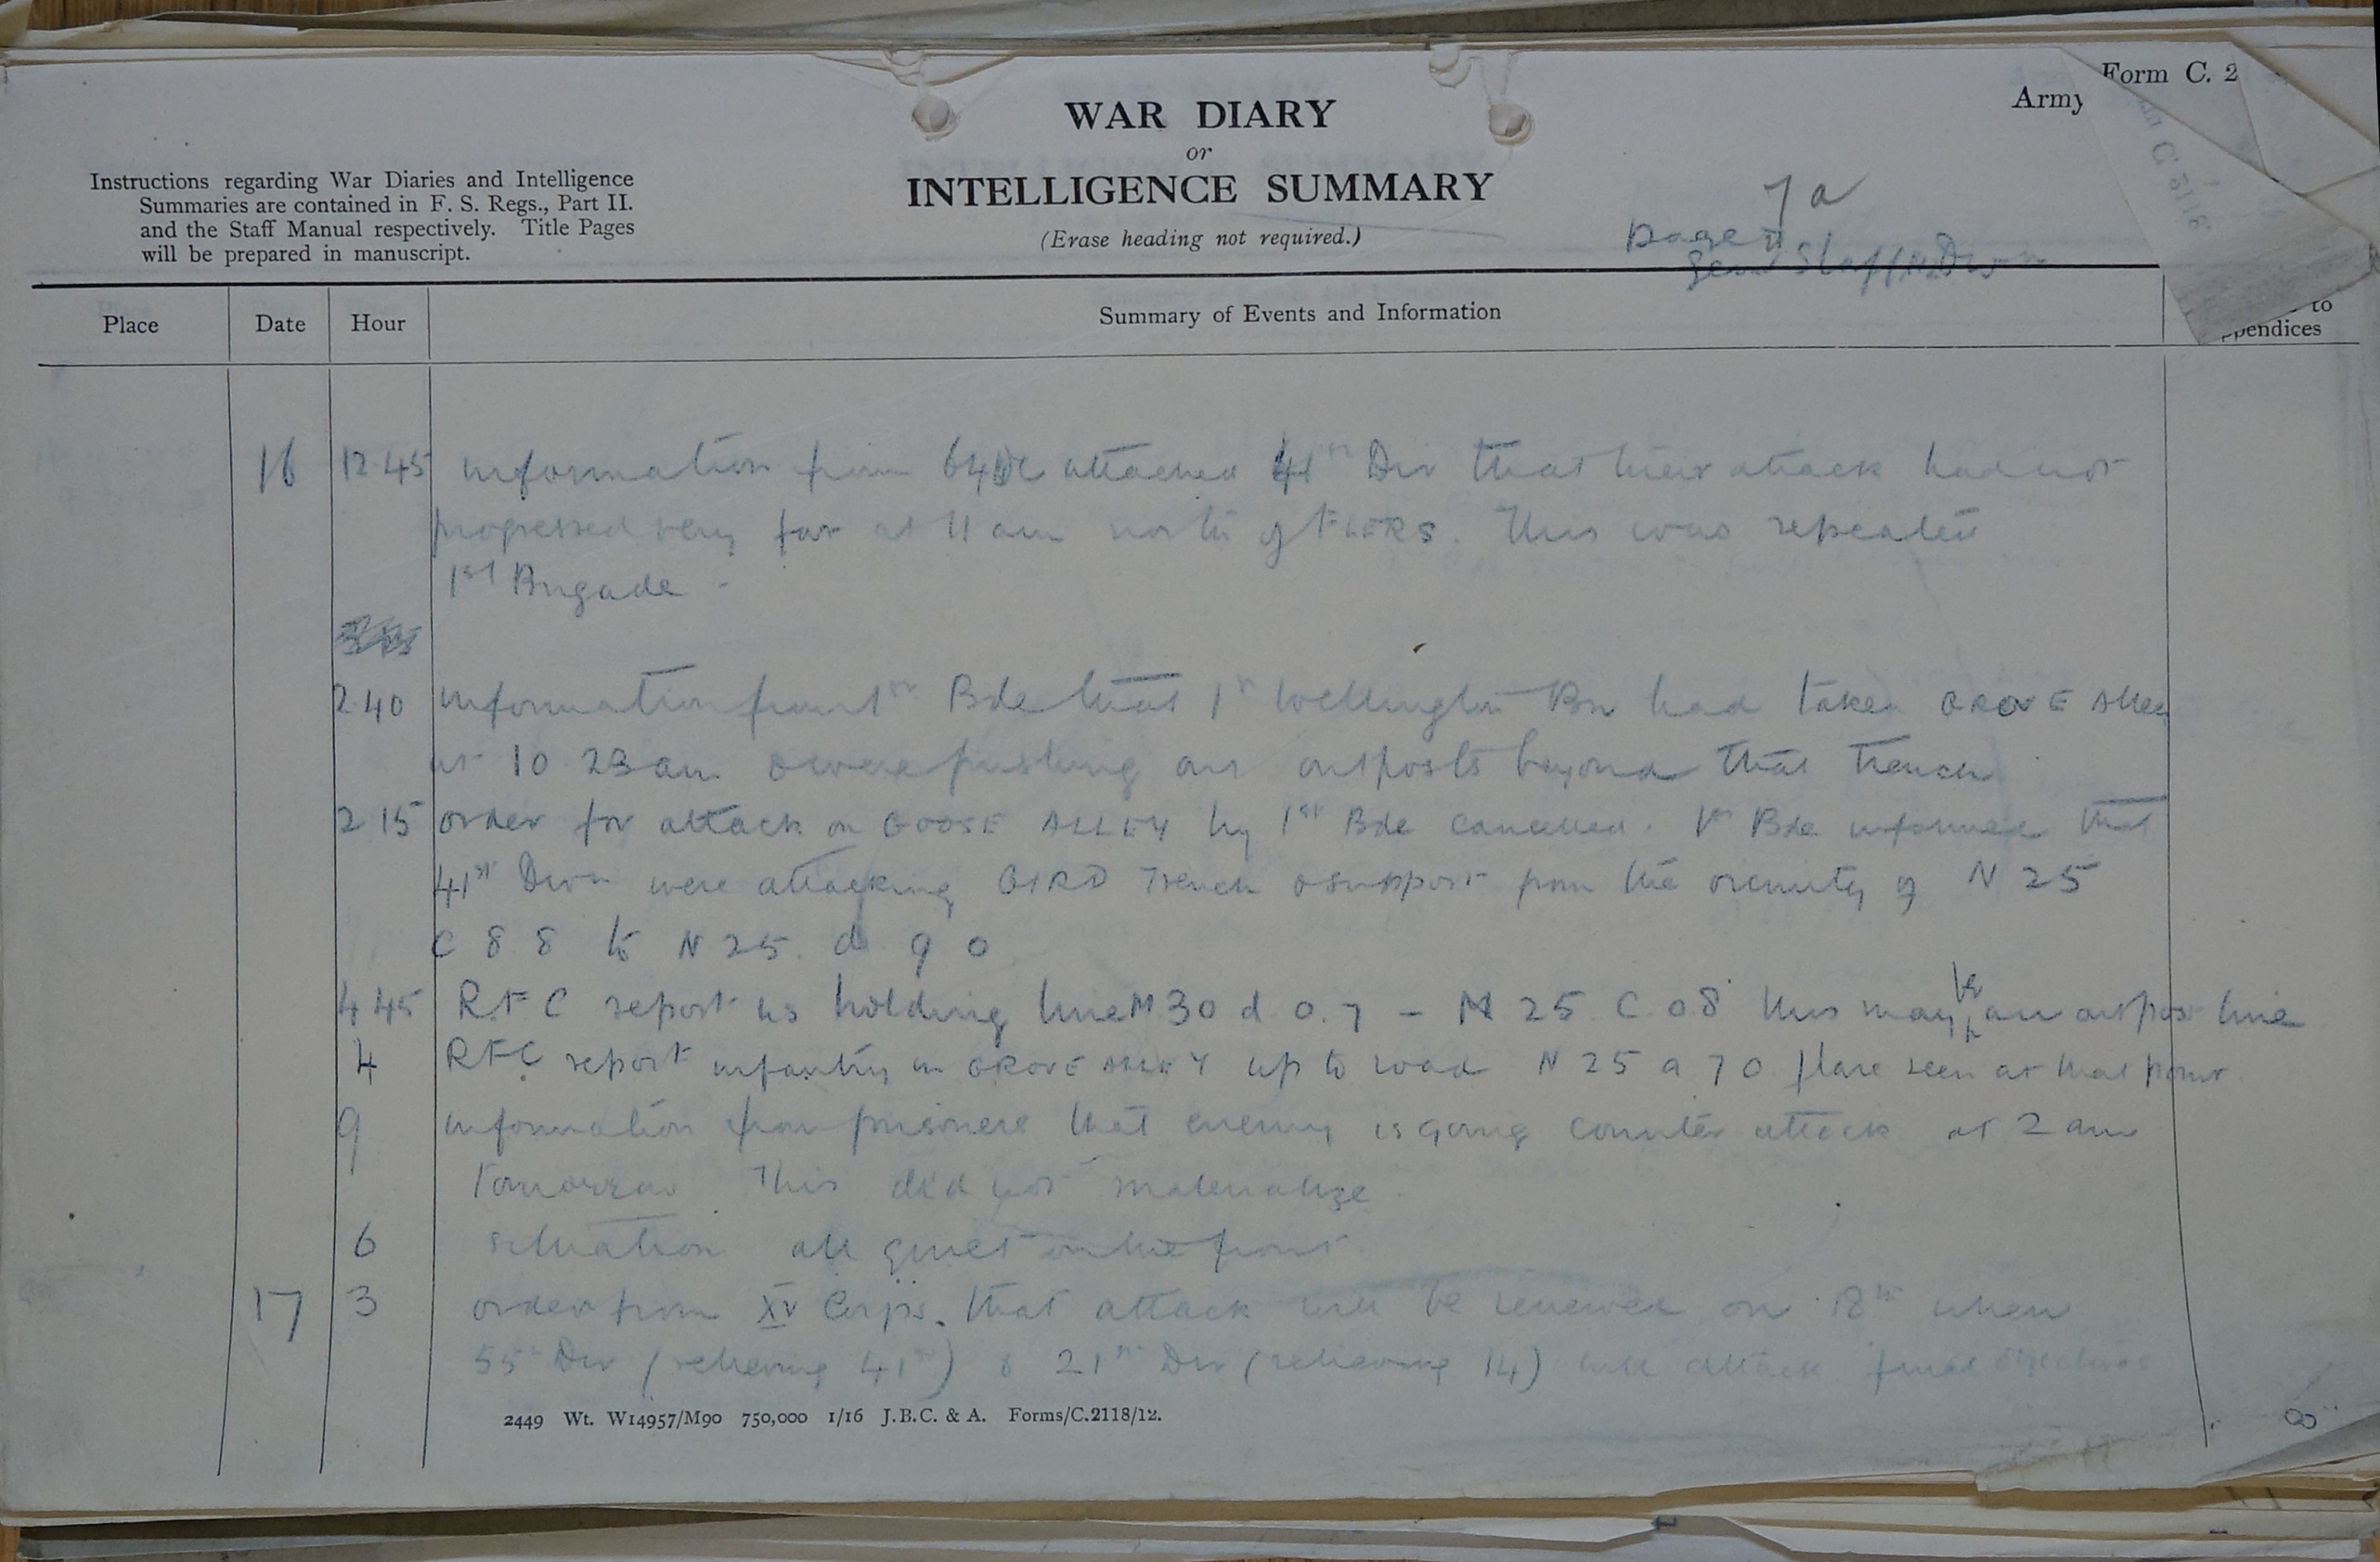 Form C. 2
Army
WAR DIARY
or
INTELLIGENCE SUMMARY
(Erase heading not required.)
Instructions regarding War Diaries and Intelligence
Summaries are contained in F. S. Regs., Part II.
and the Staff Manual respectively. Title Pages
will be prepared in manuscript.
7a
page
Genl Staff NZ Divn
Place
Date
Hour
Summary of Events and Information
to
pendices
16 12 45 information from attached 41st Div that their attack had not
progressed very far at 11 am north of FLERS. This was repeated
1st Brigade -
2.40 information from 1st Bde that 1st Wellington Bn had taken GROVE Alley
at 10 23 am & were pushing out outposts beyond that trench
2 15 order for attack on GOOSE ALLEY by 1st Bde cancelled. 1st Bde informed that
41st Divn were attacking GIRD Trench & support from the vicinity of N 25
C 8 8 to N 25. d 9 0
4 45 RFC report us holding line M 30 d 0.7 - N 25 C 0 8 this may be an outpost line
4 RFC report infantry in GROVE ALLEY up to road N 25 a 7 0 flare seen at that point
9 information from prisoners that enemy is going counter attack at 2 am
tomorrow This did not materialize
6 situation all quiet on the front
17 3 order from XV Corps. that attack will be renewed on 18th when
55th Div (relieving 41st) & 21st Div (relieving 14) will attack final objectives
2449 Wt. W14957/M90 750,000 1/16 J.B.C. & A. Forms/C.2118/12.
8